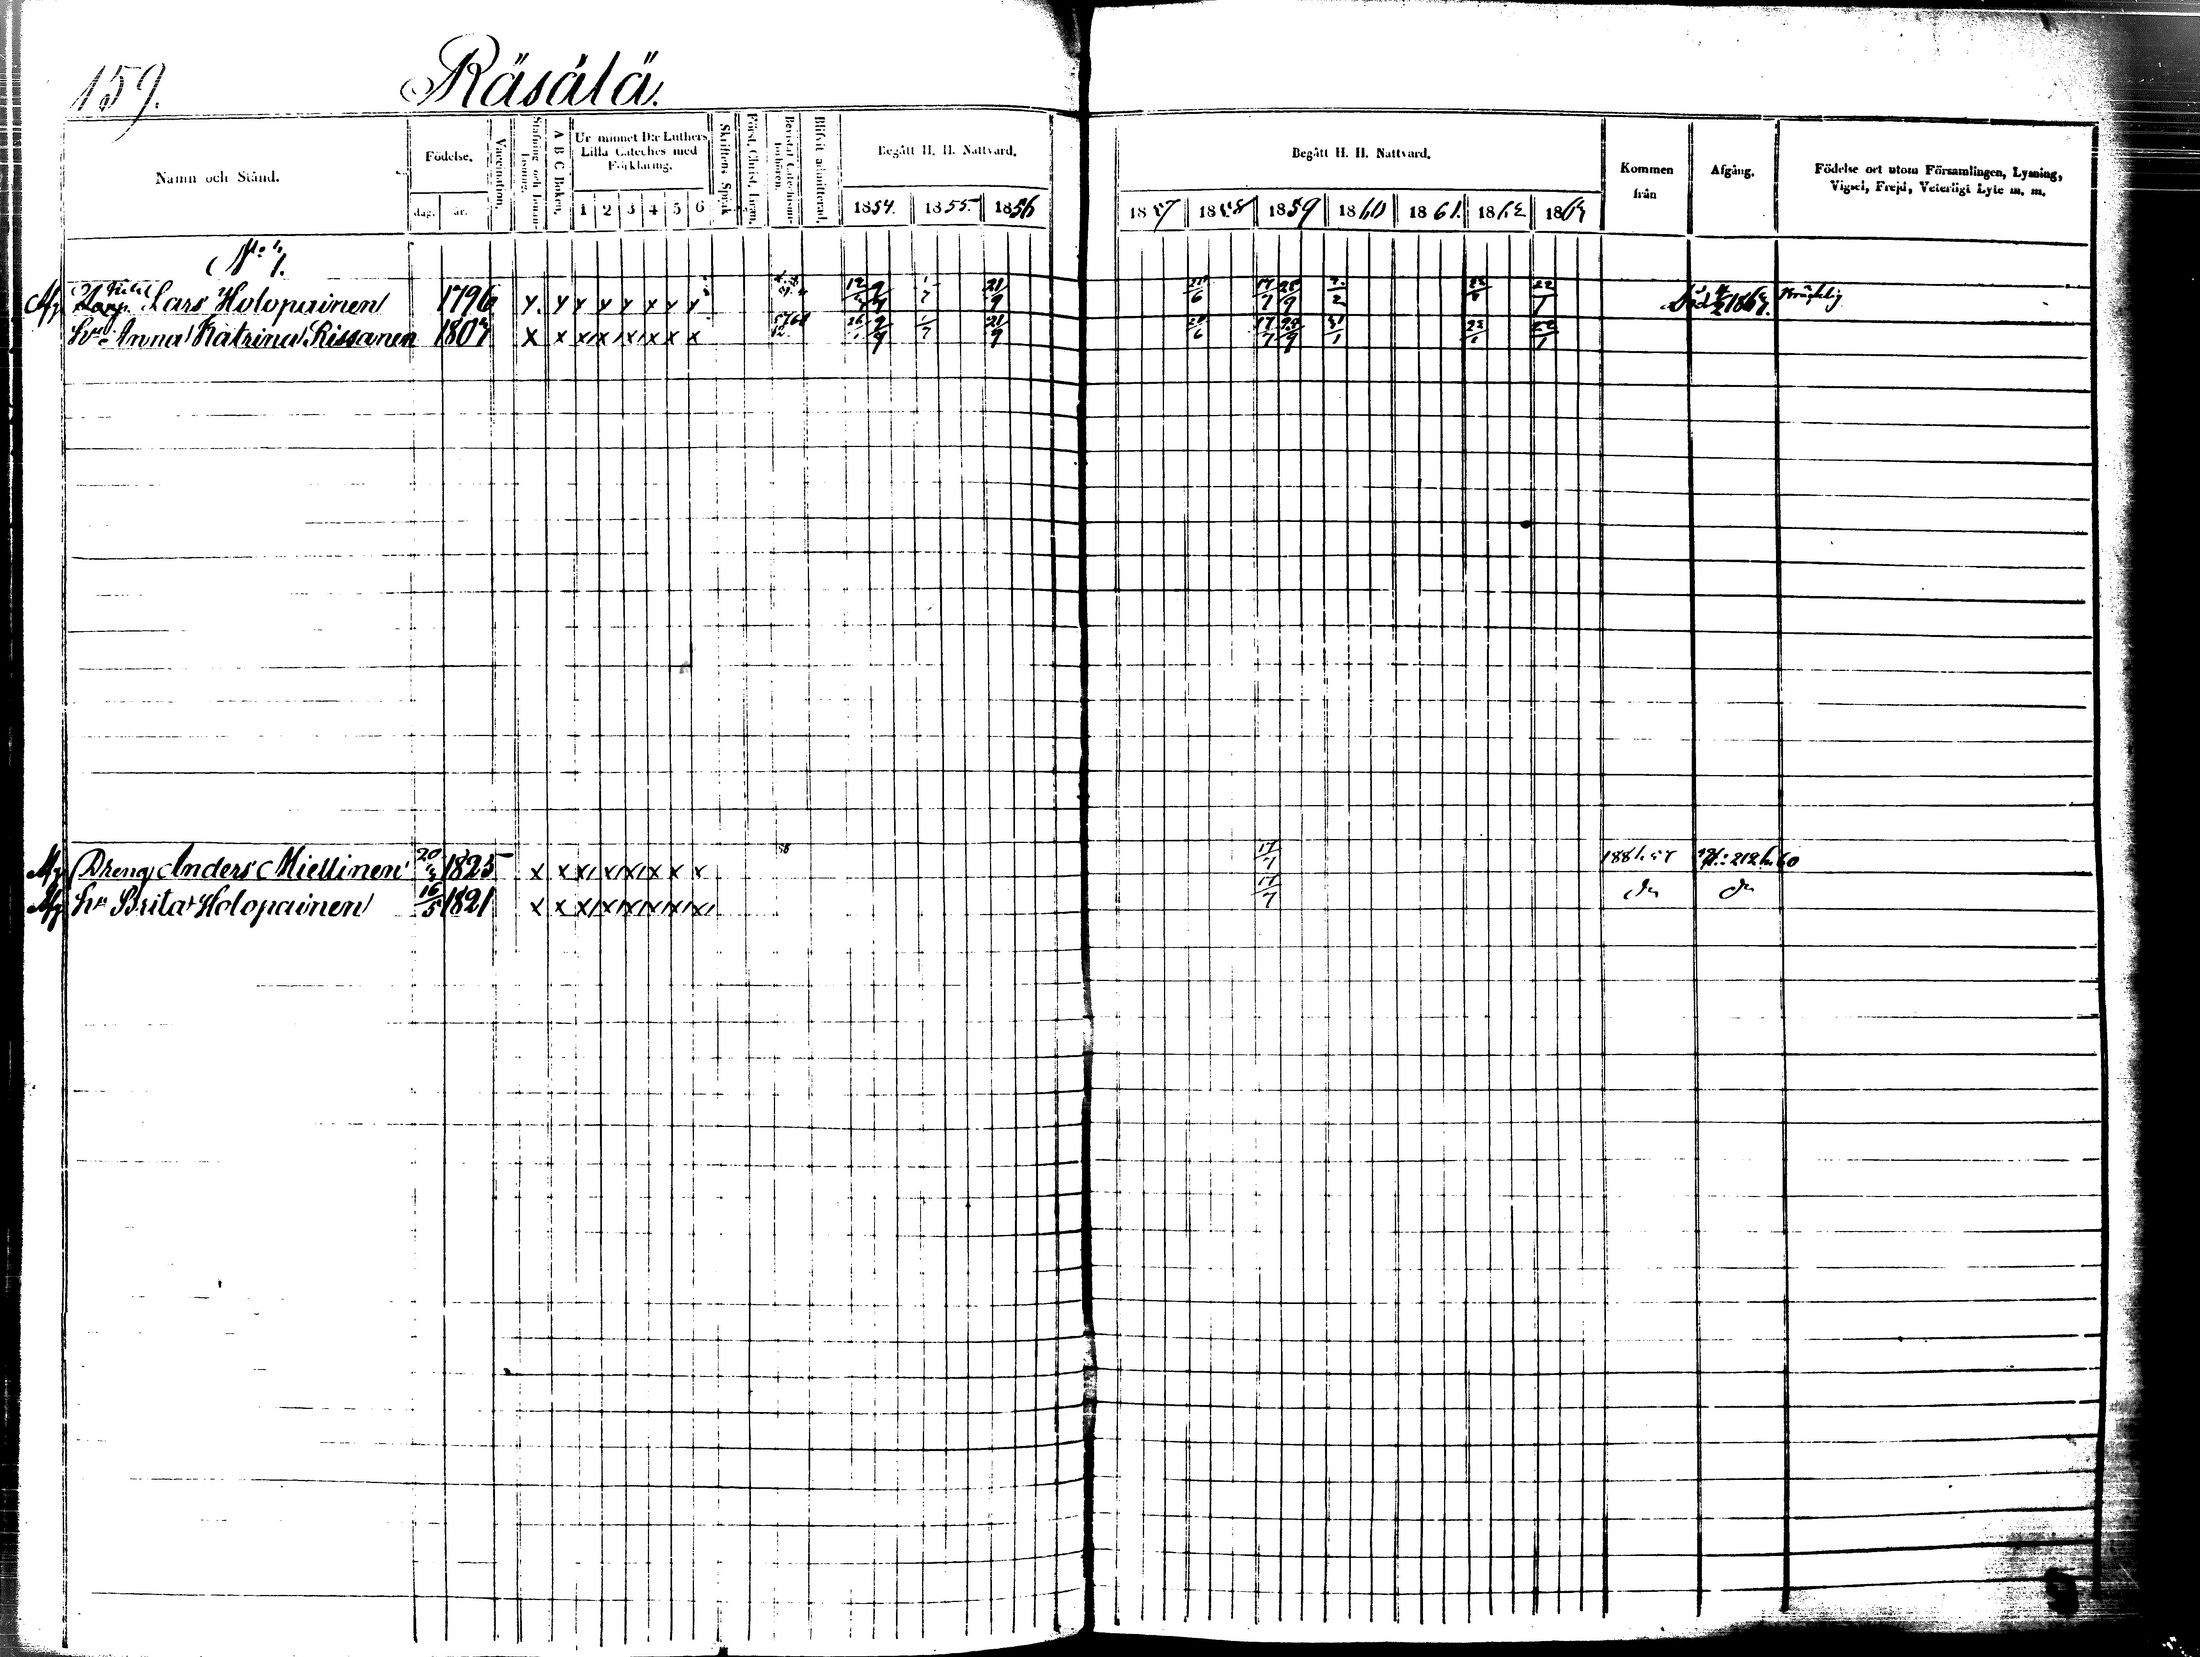 159. Räsälä.
Namn och Stånd. Födelse. dag. år. Vaccination. Stafning och Innan läsning. A B C Boken. Ur minnet D:r Luthers Lilla Cateches med Förklaring. 1 2 3 4 5 6 Skriftens Språk Först. Christ. Lärn. Bevistat Catechismi förhören. Blifvit admitterad. Begått H. H. Nattvard. 1854. 1855. 1856
Begått H. H. Nattvard. 1857 1858 1859 1860 1861. 1862 1863 Kommen från Afgång. Födelse ort utom Församlingen, Lysning, Vigsel, Frejd, Veterligt Lyte m. m.
N:o 1.
Lars Holopainen 1796 y. y y y y x x y 9/9 21/9 20/6 17/7 28/9 22/1 Död 1863. Bräcklig
hu Anna Katrina Rissanen 180 x x x x x x x x 9/9 1/7 21/9 20/6 17/7 28/9 31/1 22/1
Dreng Anders Miettinen 20 1825 x x x x x x x x 58 17/7 212 60
hu Brita Holopainen 16/5 1821 x x x x x x x x 17/7 do do